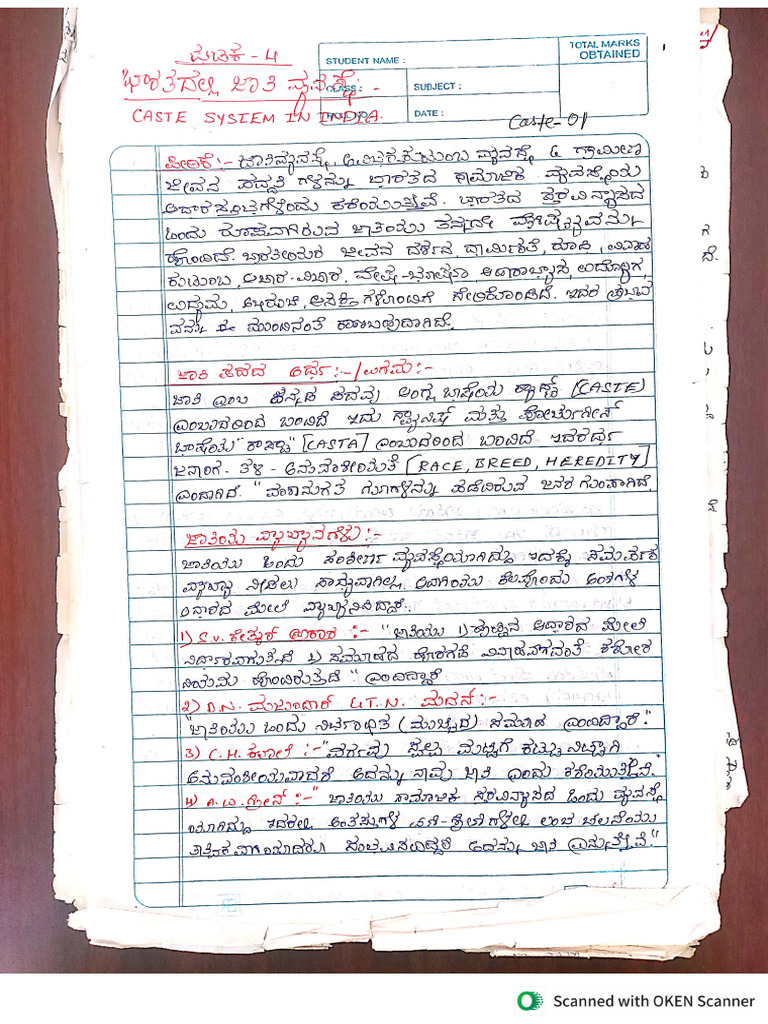 ಘಟಕ - 4
ಭಾರತದಲ್ಲಿ ಜಾತಿ ವ್ಯವಸ್ಥೆ :-
CASTE SYSTEM IN INDIA.
STUDENT NAME :
TOTAL MARKS
OBTAINED
CLASS :
SUBJECT :
DATE :
Caste-01
ಪೀಠಿಕೆ :- ಜಾತಿವ್ಯವಸ್ಥೆ, ಅವಿಭಕ್ತ ಕುಟುಂಬ ವ್ಯವಸ್ಥೆ & ಗ್ರಾಮೀಣ
ಜೀವನ ಪದ್ಧತಿ ಗಳನ್ನು ಭಾರತದ ಸಾಮಾಜಿಕ ವ್ಯವಸ್ಥೆಯ
ಆಧಾರ ಸ್ತಂಭಗಳೆಂದು ಕರೆಯುತ್ತೇವೆ. ಭಾರತದ ಸ್ತರವಿನ್ಯಾಸದ
ಒಂದು ರೂಪವಾಗಿರುವ ಜಾತಿಯು ತನ್ನದೇ ವೈಶಿಷ್ಟ್ಯವನ್ನು
ಹೊಂದಿದೆ. ಭಾರತೀಯರ ಜೀವನ ದರ್ಶನ, ಧಾರ್ಮಿಕತೆ, ರೂಢಿ, ವಿವಾಹ
ಕುಟುಂಬ, ಆಚಾರ-ವಿಚಾರ, ವೇಷ-ಭೂಷಣ, ಆಹಾರಾಭ್ಯಾಸ, ಉದ್ಯೋಗ,
ಉದ್ಯಮ, ಅಭಿರುಚಿ, ಆಸಕ್ತಿ ಗಳೊಂದಿಗೆ ಸೇರಿಕೊಂಡಿದೆ. ಇದರ ಪ್ರಭಾವ
ವನ್ನು ಈ ಮುಂದಿನಂತೆ ಕಾಣಬಹುದಾಗಿದೆ.
ಜಾತಿ ಪದದ ಅರ್ಥ :-/ಉಗಮ :-
ಜಾತಿ ಎಂಬ ಕನ್ನಡ ಪದವು ಆಂಗ್ಲ ಭಾಷೆಯ ಕ್ಯಾಸ್ಟ್ [CASTE]
ಎಂಬುದರಿಂದ ಬಂದಿದೆ ಇದು ಸ್ಪ್ಯಾನಿಷ್ ಮತ್ತು ಪೋರ್ಚುಗೀಸ್
ಭಾಷೆಯ "ಕಾಸ್ಟಾ" [CASTA] ಎಂಬುದರಿಂದ ಬಂದಿದೆ ಇದರರ್ಥ
ಜನಾಂಗ - ತಳಿ - ಅನುವಂಶೀಯತೆ [RACE, BREED, HEREDITY]
ಎಂದಾಗಿದೆ. "ವಂಶಾನುಗತ ಗುಣಗಳನ್ನು ಪಡೆದಿರುವ ಜನರ ಗುಂಪಾಗಿದೆ.
ಜಾತಿಯ ವ್ಯಾಖ್ಯಾನಗಳು :-
ಜಾತಿಯು ಒಂದು ಸಂಕೀರ್ಣ ವ್ಯವಸ್ಥೆಯಾಗಿದ್ದು ಇದಕ್ಕೆ ಸಮರ್ಪಕ
ವ್ಯಾಖ್ಯೆ ನೀಡಲು ಸಾಧ್ಯವಾಗಿಲ್ಲ. ಆದಾಗಿಯೂ ಕೆಲವೊಂದು ಅಂಶಗಳ
ಆಧಾರದ ಮೇಲೆ ವ್ಯಾಖ್ಯಾನಿಸಿದ್ದಾರೆ.
1) S.V. ಕೇತ್ಕರ್ ಪ್ರಕಾರ :- "ಜಾತಿಯು 1) ಹುಟ್ಟಿನ ಆಧಾರದ ಮೇಲೆ
ನಿರ್ಧಾರವಾಗುತ್ತದೆ 2) ಸಮೂಹದ ಹೊರಗಡೆ ವಿವಾಹವಾಗದಂತೆ ಕಠೋರ
ನಿಯಮ ಹೊಂದಿರುತ್ತದೆ" ಎಂದಿದ್ದಾರೆ
2) D.N. ಮಜುಂದಾರ್ & T.N. ಮದನ್ :-
"ಜಾತಿಯು ಒಂದು ನಿರ್ಬಂಧಿತ (ಮುಚ್ಚಿದ) ಸಮೂಹ ಎಂದಿದ್ದಾರೆ."
3) C.H. ಕೂಲೆ :- "ವರ್ಗವು ಸ್ವಲ್ಪ ಮಟ್ಟಿಗೆ ಕಟ್ಟುನಿಟ್ಟಾಗಿ
ಅನುವಂಶೀಯವಾದರೆ ಅದನ್ನು ನಾವು ಜಾತಿ ಎಂದು ಕರೆಯುತ್ತೇವೆ.
4) A.W. ಗ್ರೀನ್ :- "ಜಾತಿಯು ಸಾಮಾಜಿಕ ಸ್ತರವಿನ್ಯಾಸದ ಒಂದು ವ್ಯವಸ್ಥೆ
ಯಾಗಿದ್ದು ಇದರಲ್ಲಿ ಅಂತಸ್ತುಗಳ ಏಣಿ-ಶ್ರೇಣಿಗಳಲ್ಲಿ ಲಂಬ ಚಲನೆಯು
ತಾತ್ವಿಕವಾಗಿಯಾದರೂ ಸಂಭವಿಸದಿದ್ದರೆ ಅದನ್ನು ಜಾತಿ ಎನ್ನುತ್ತೇವೆ."
Scanned with OKEN Scanner